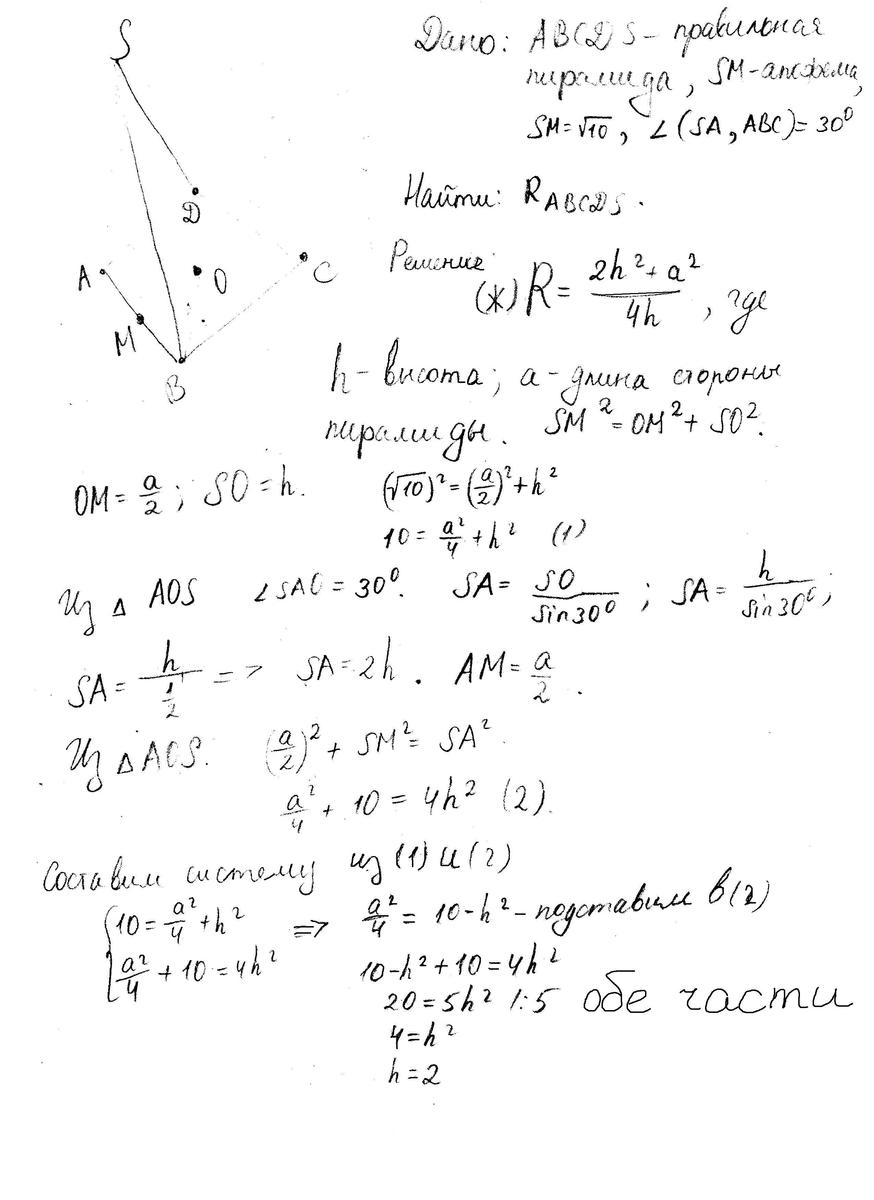 S
D
A
O
C
M
B
Дано: ABCDS - правильная
пирамида, SM-апофема,
SM=√10, ∠(SA, ABC)=30⁰
Найти: R_ABCDS.
Решение:
(Ж) R= (2h²+a²)/(4h), где
h-высота; a-длина стороны
пирамиды. SM²=OM²+SO².
OM=a/2; SO=h. (√10)²=(a/2)²+h²
10=a²/4+h² (1)
Из △ AOS ∠SAO=30⁰. SA=SO/sin30⁰; SA=h/sin30⁰;
SA=h/(1/2) => SA=2h. AM=a/2.
Из △AOS. (a/2)²+SM²=SA².
a²/4+10=4h² (2).
Составим систему из (1) и (2)
{10=a²/4+h² => a²/4=10-h²-подставим в (2)
{a²/4+10=4h² 10-h²+10=4h²
20=5h² |:5 обе части
4=h²
h=2